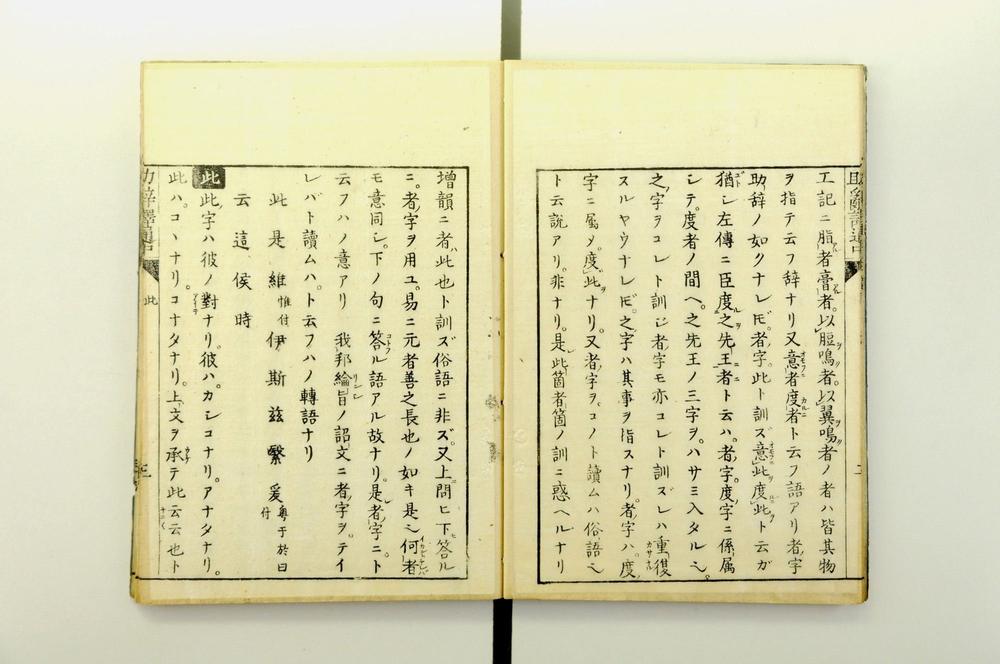 工記ニ脂者膏者。以脰鳴者。以翼鳴者ノ者ハ皆其物
ヲ指テ云フ辞ナリ又意者度者ト云フ語アリ者字
助辞ノ如クナレ𪜈。者字。此ト訓ズ意此度此ト云ガ
猶シ左傳ニ臣度之先王者ト云ハ。者字度字ニ係属
シテ。度者ノ間ヘ。之先王ノ三字ヲ。ハサミ入タル也。
之字ヲコレト訓ジ者字モ亦コレト訓ズレハ重復
スルヤウナレ𪜈。之字ハ其事ヲ指スナリ。者字ハ。度
字ニ属ソ。度此ナリ。又者字ヲ。コノト讀ムハ俗語也
ト云説アリ。非ナリ。是此箇者箇ノ訓ニ惑ヘルナリ
増韻ニ者ハ此也ト訓ズ俗語ニ非ズ。又上問ヒ下答ル
ニ。者字ヲ用ユ。易ニ元者善之長也ノ如キ是也何者
モ意同シ。下ノ句ニ答ル語アル故ナリ。是者字ニ。ト
云フハノ意アリ 我邦綸旨ノ詔文ニ者字ヲ。テイ
レバト讀ムハ。ト云フハノ轉語ナリ
此 是 維 惟付 伊 斯 茲 繄 爰 粤于於曰付
云 這 侯 時
此 此字ハ彼ノ對ナリ。彼ハ。カシコナリ。アナタナリ。
此ハ。コヽナリ。コナタナリ。上文ヲ承テ此云云也ト
此